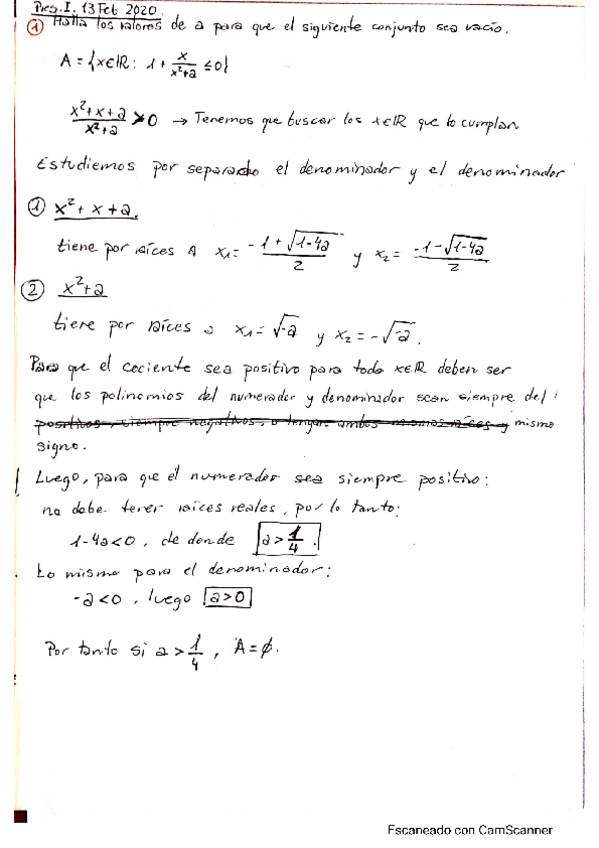 Preg. I. 13 Feb 2020.
① Halla los valores de a para que el siguiente conjunto sea vacío.
A = {x∈ℝ: 1 + x/(x²+a) ≤ 0}
(x²+x+a)/(x²+a) > 0 → Tenemos que buscar los x∈ℝ que lo cumplan
Estudiemos por separado el denominador y el denominador
① x² + x + a.
tiene por raíces a x₁ = (-1 + √(1-4a))/2 y x₂ = (-1 - √(1-4a))/2
② x² + a
tiene por raíces a x₁ = √-a y x₂ = -√-a.
Para que el cociente sea positivo para todo x∈ℝ deben ser
que los polinomios del numerador y denominador sean siempre del
positivos, siempre negativos, o tengan ambos mismas raíces y mismo
signo.
Luego, para que el numerador sea siempre positivo:
no debe tener raíces reales, por lo tanto:
1-4a<0, de donde a > 1/4.
Lo mismo para el denominador:
-a<0, luego a>0
Por tanto si a > 1/4, A = ∅.
Escaneado con CamScanner